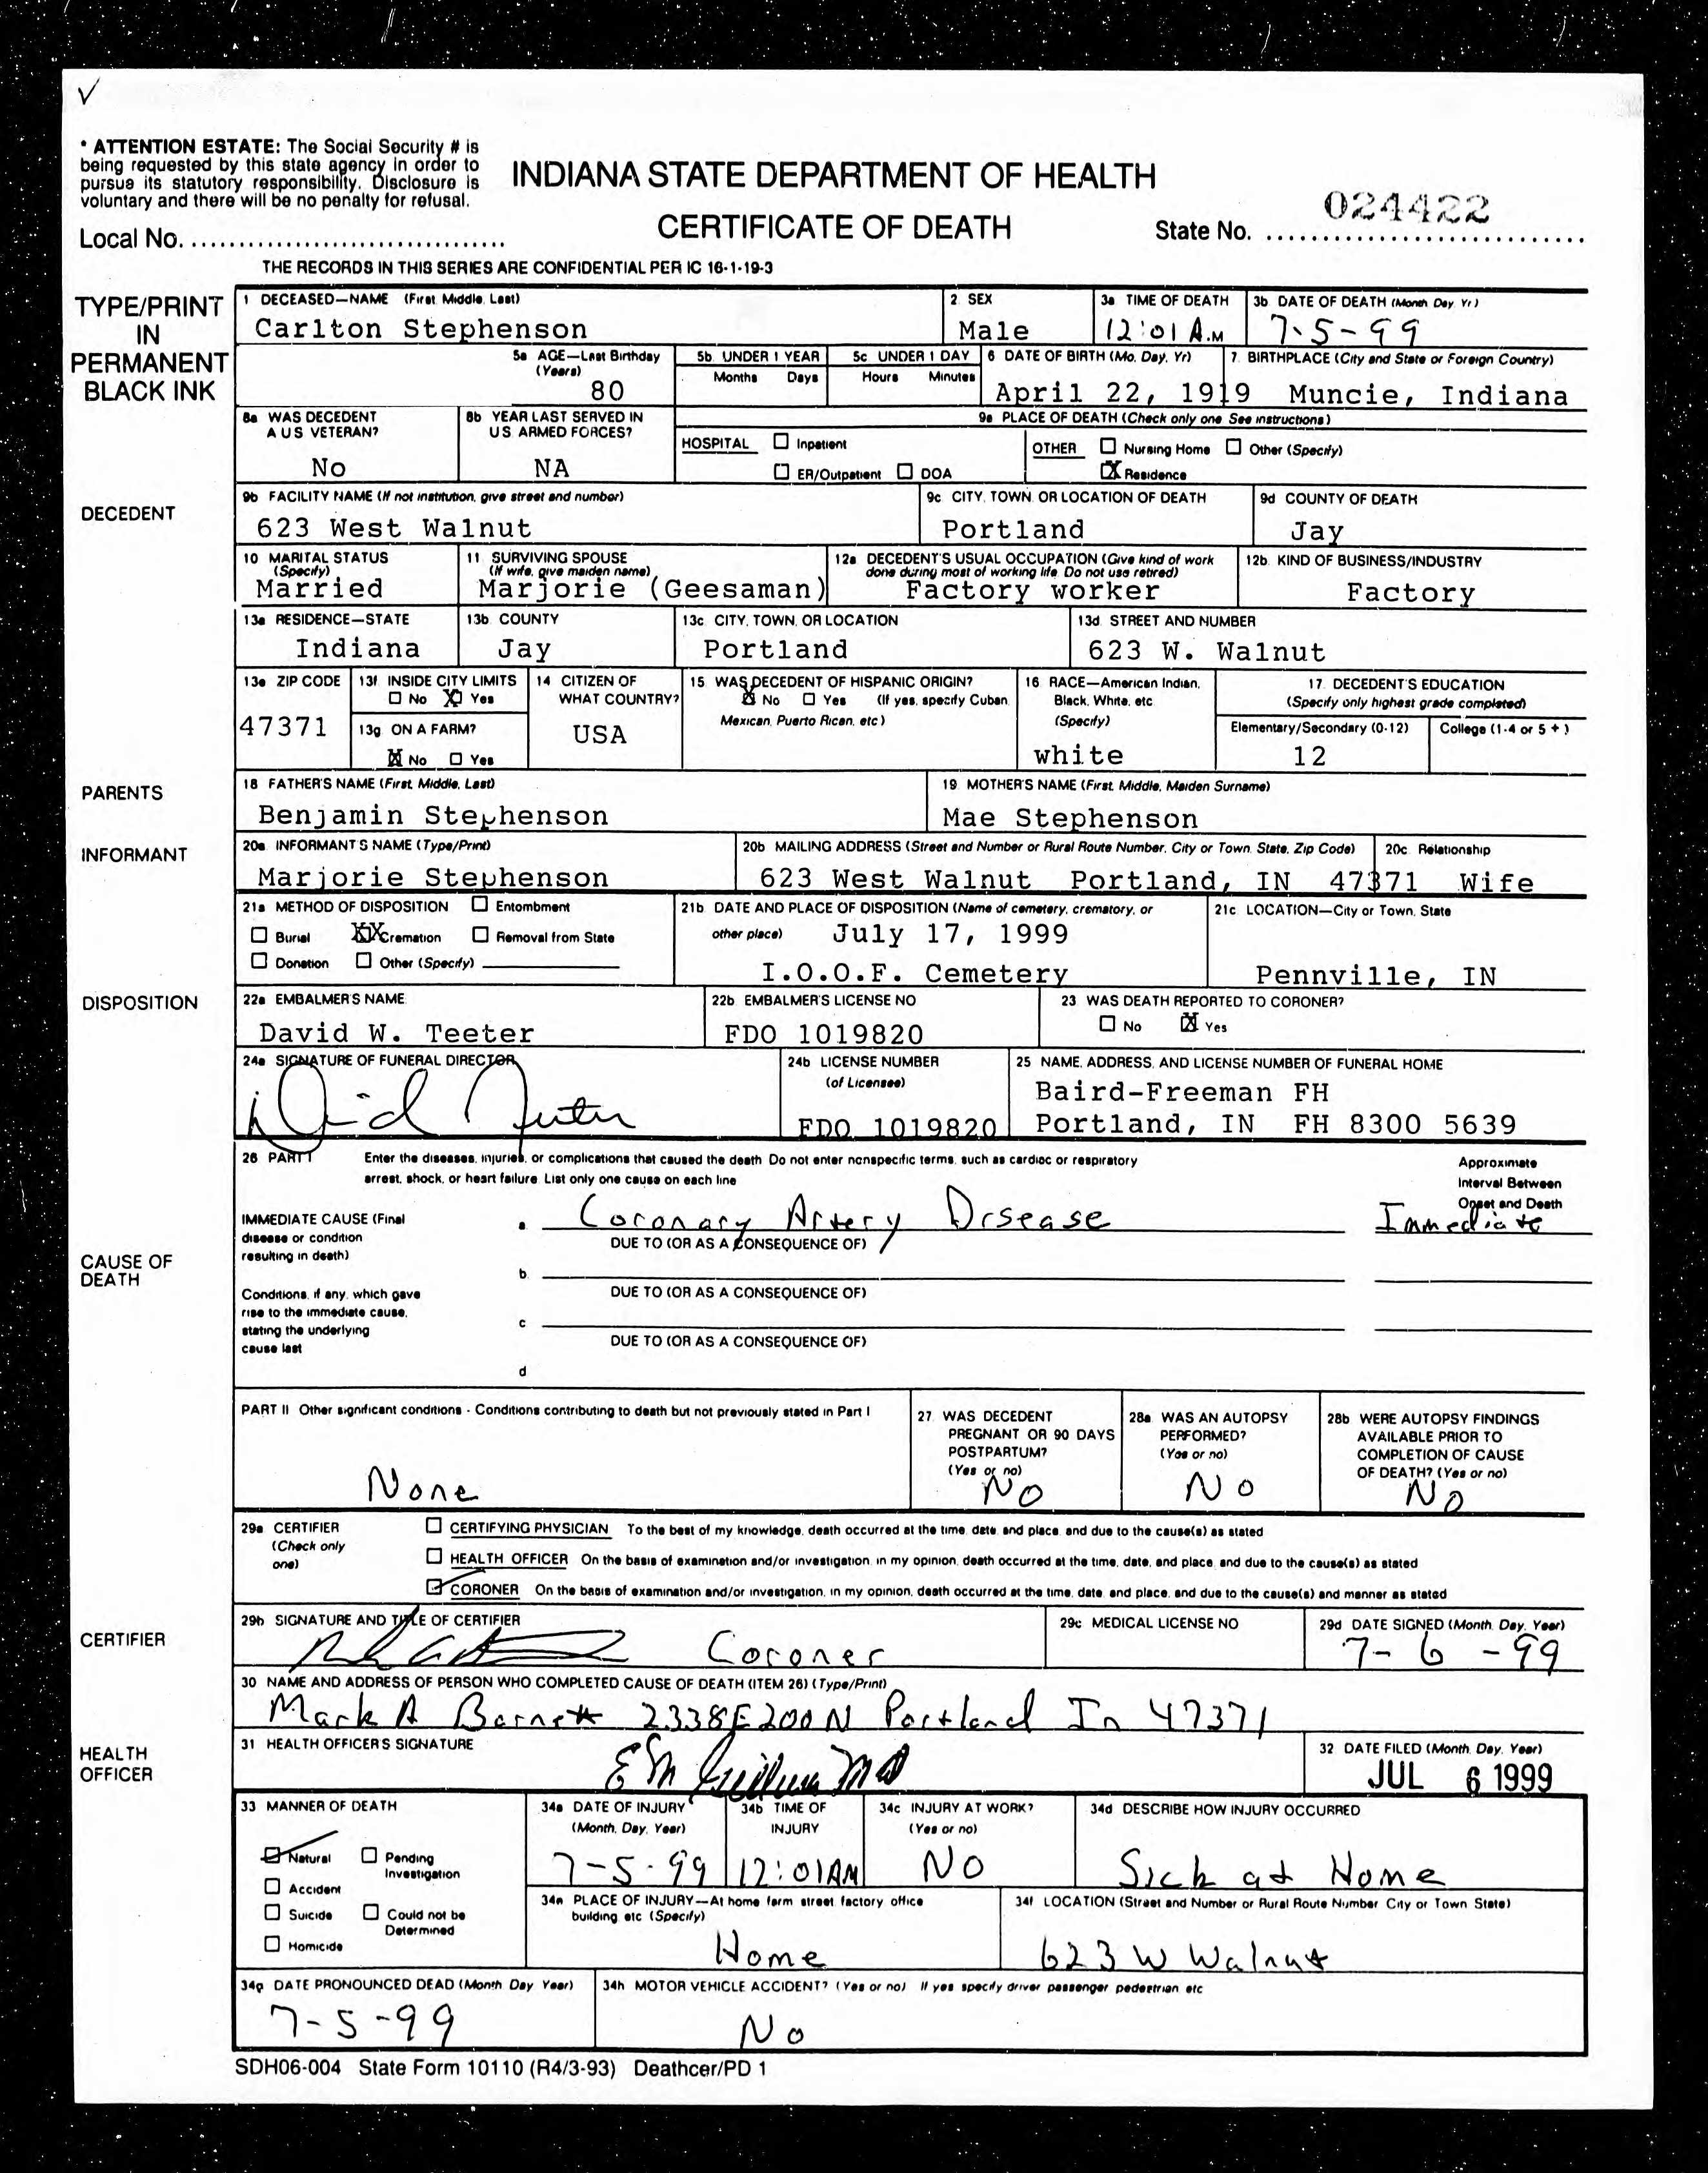 ✓
* ATTENTION ESTATE: The Social Security # is
being requested by this state agency in order to
pursue its statutory responsibility. Disclosure is
voluntary and there will be no penalty for refusal.
INDIANA STATE DEPARTMENT OF HEALTH
CERTIFICATE OF DEATH
Local No. ..................................
State No. ..............................
024422
THE RECORDS IN THIS SERIES ARE CONFIDENTIAL PER IC 16-1-19-3
TYPE/PRINT
IN
PERMANENT
BLACK INK
1 DECEASED—NAME (First, Middle, Last)
Carlton Stephenson
2. SEX
Male
3a TIME OF DEATH
12:01 A.M
3b. DATE OF DEATH (Month Day Yr)
7-5-99
5a AGE—Last Birthday
(Years)
80
5b. UNDER 1 YEAR
Months Days
5c UNDER 1 DAY
Hours Minutes
6 DATE OF BIRTH (Mo. Day, Yr)
April 22, 1919
7. BIRTHPLACE (City and State or Foreign Country)
Muncie, Indiana
8a WAS DECEDENT
A US VETERAN?
No
8b YEAR LAST SERVED IN
US ARMED FORCES?
NA
9a PLACE OF DEATH (Check only one See instructions)
HOSPITAL ☐ Inpatient
☐ ER/Outpatient ☐ DOA
OTHER ☐ Nursing Home ☐ Other (Specify)
☒ Residence
DECEDENT
9b FACILITY NAME (If not institution, give street and number)
623 West Walnut
9c CITY, TOWN, OR LOCATION OF DEATH
Portland
9d COUNTY OF DEATH
Jay
10 MARITAL STATUS
(Specify)
Married
11 SURVIVING SPOUSE
(If wife, give maiden name)
Marjorie (Geesaman)
12a DECEDENT'S USUAL OCCUPATION (Give kind of work
done during most of working life. Do not use retired)
Factory worker
12b. KIND OF BUSINESS/INDUSTRY
Factory
13a RESIDENCE—STATE
Indiana
13b COUNTY
Jay
13c CITY, TOWN, OR LOCATION
Portland
13d STREET AND NUMBER
623 W. Walnut
13e ZIP CODE
47371
13f INSIDE CITY LIMITS
☐ No ☒ Yes
13g ON A FARM?
☒ No ☐ Yes
14 CITIZEN OF
WHAT COUNTRY?
USA
15 WAS DECEDENT OF HISPANIC ORIGIN?
☒ No ☐ Yes (If yes, specify Cuban,
Mexican, Puerto Rican, etc)
16 RACE—American Indian,
Black, White, etc
(Specify)
white
17. DECEDENT'S EDUCATION
(Specify only highest grade completed)
Elementary/Secondary (0-12)
12
College (1-4 or 5 +)
PARENTS
18 FATHER'S NAME (First, Middle, Last)
Benjamin Stephenson
19 MOTHER'S NAME (First, Middle, Maiden Surname)
Mae Stephenson
INFORMANT
20a INFORMANT'S NAME (Type/Print)
Marjorie Stephenson
20b MAILING ADDRESS (Street and Number or Rural Route Number, City or Town, State, Zip Code)
623 West Walnut Portland, IN 47371
20c Relationship
Wife
21a METHOD OF DISPOSITION ☐ Entombment
☐ Burial ☒ Cremation ☐ Removal from State
☐ Donation ☐ Other (Specify)
21b DATE AND PLACE OF DISPOSITION (Name of cemetery, crematory, or
other place) July 17, 1999
I.O.O.F. Cemetery
21c LOCATION—City or Town, State
Pennville, IN
DISPOSITION
22a EMBALMER'S NAME
David W. Teeter
22b EMBALMER'S LICENSE NO
FDO 1019820
23 WAS DEATH REPORTED TO CORONER?
☐ No ☒ Yes
24a SIGNATURE OF FUNERAL DIRECTOR
David Teeter
24b LICENSE NUMBER
(of Licensee)
FDO 1019820
25 NAME, ADDRESS, AND LICENSE NUMBER OF FUNERAL HOME
Baird-Freeman FH
Portland, IN FH 8300 5639
26 PART I Enter the diseases, injuries, or complications that caused the death Do not enter nonspecific terms, such as cardiac or respiratory
arrest, shock, or heart failure List only one cause on each line
Approximate
Interval Between
Onset and Death
CAUSE OF
DEATH
IMMEDIATE CAUSE (Final
disease or condition
resulting in death)
a. Coronary Artery Disease
Immediate
DUE TO (OR AS A CONSEQUENCE OF)
b.
DUE TO (OR AS A CONSEQUENCE OF)
Conditions, if any, which gave
rise to the immediate cause,
stating the underlying
cause last
c
DUE TO (OR AS A CONSEQUENCE OF)
d
PART II Other significant conditions - Conditions contributing to death but not previously stated in Part I
None
27. WAS DECEDENT
PREGNANT OR 90 DAYS
POSTPARTUM?
(Yes or no)
No
28a. WAS AN AUTOPSY
PERFORMED?
(Yes or no)
No
28b WERE AUTOPSY FINDINGS
AVAILABLE PRIOR TO
COMPLETION OF CAUSE
OF DEATH? (Yes or no)
No
29a CERTIFIER
(Check only
one)
☐ CERTIFYING PHYSICIAN To the best of my knowledge, death occurred at the time, date, and place, and due to the cause(s) as stated
☐ HEALTH OFFICER On the basis of examination and/or investigation, in my opinion, death occurred at the time, date, and place, and due to the cause(s) as stated
☑ CORONER On the basis of examination and/or investigation, in my opinion, death occurred at the time, date, and place, and due to the cause(s) and manner as stated
CERTIFIER
29b SIGNATURE AND TITLE OF CERTIFIER
Coroner
29c MEDICAL LICENSE NO
29d DATE SIGNED (Month, Day, Year)
7-6-99
30 NAME AND ADDRESS OF PERSON WHO COMPLETED CAUSE OF DEATH (ITEM 26) (Type/Print)
Mark A Barnett 2338E200N Portland In 47371
HEALTH
OFFICER
31 HEALTH OFFICER'S SIGNATURE
32 DATE FILED (Month, Day, Year)
JUL 6 1999
33 MANNER OF DEATH
☑ Natural ☐ Pending
Investigation
☐ Accident
☐ Suicide ☐ Could not be
Determined
☐ Homicide
34a DATE OF INJURY
(Month, Day, Year)
7-5-99
34b TIME OF
INJURY
12:01AM
34c INJURY AT WORK?
(Yes or no)
No
34d DESCRIBE HOW INJURY OCCURRED
Sick at Home
34e PLACE OF INJURY—At home farm street factory office
building etc (Specify)
Home
34f LOCATION (Street and Number or Rural Route Number City or Town State)
623 W Walnut
34g DATE PRONOUNCED DEAD (Month Day Year)
7-5-99
34h MOTOR VEHICLE ACCIDENT? (Yes or no) If yes specify driver passenger pedestrian etc
No
SDH06-004 State Form 10110 (R4/3-93) Deathcer/PD 1